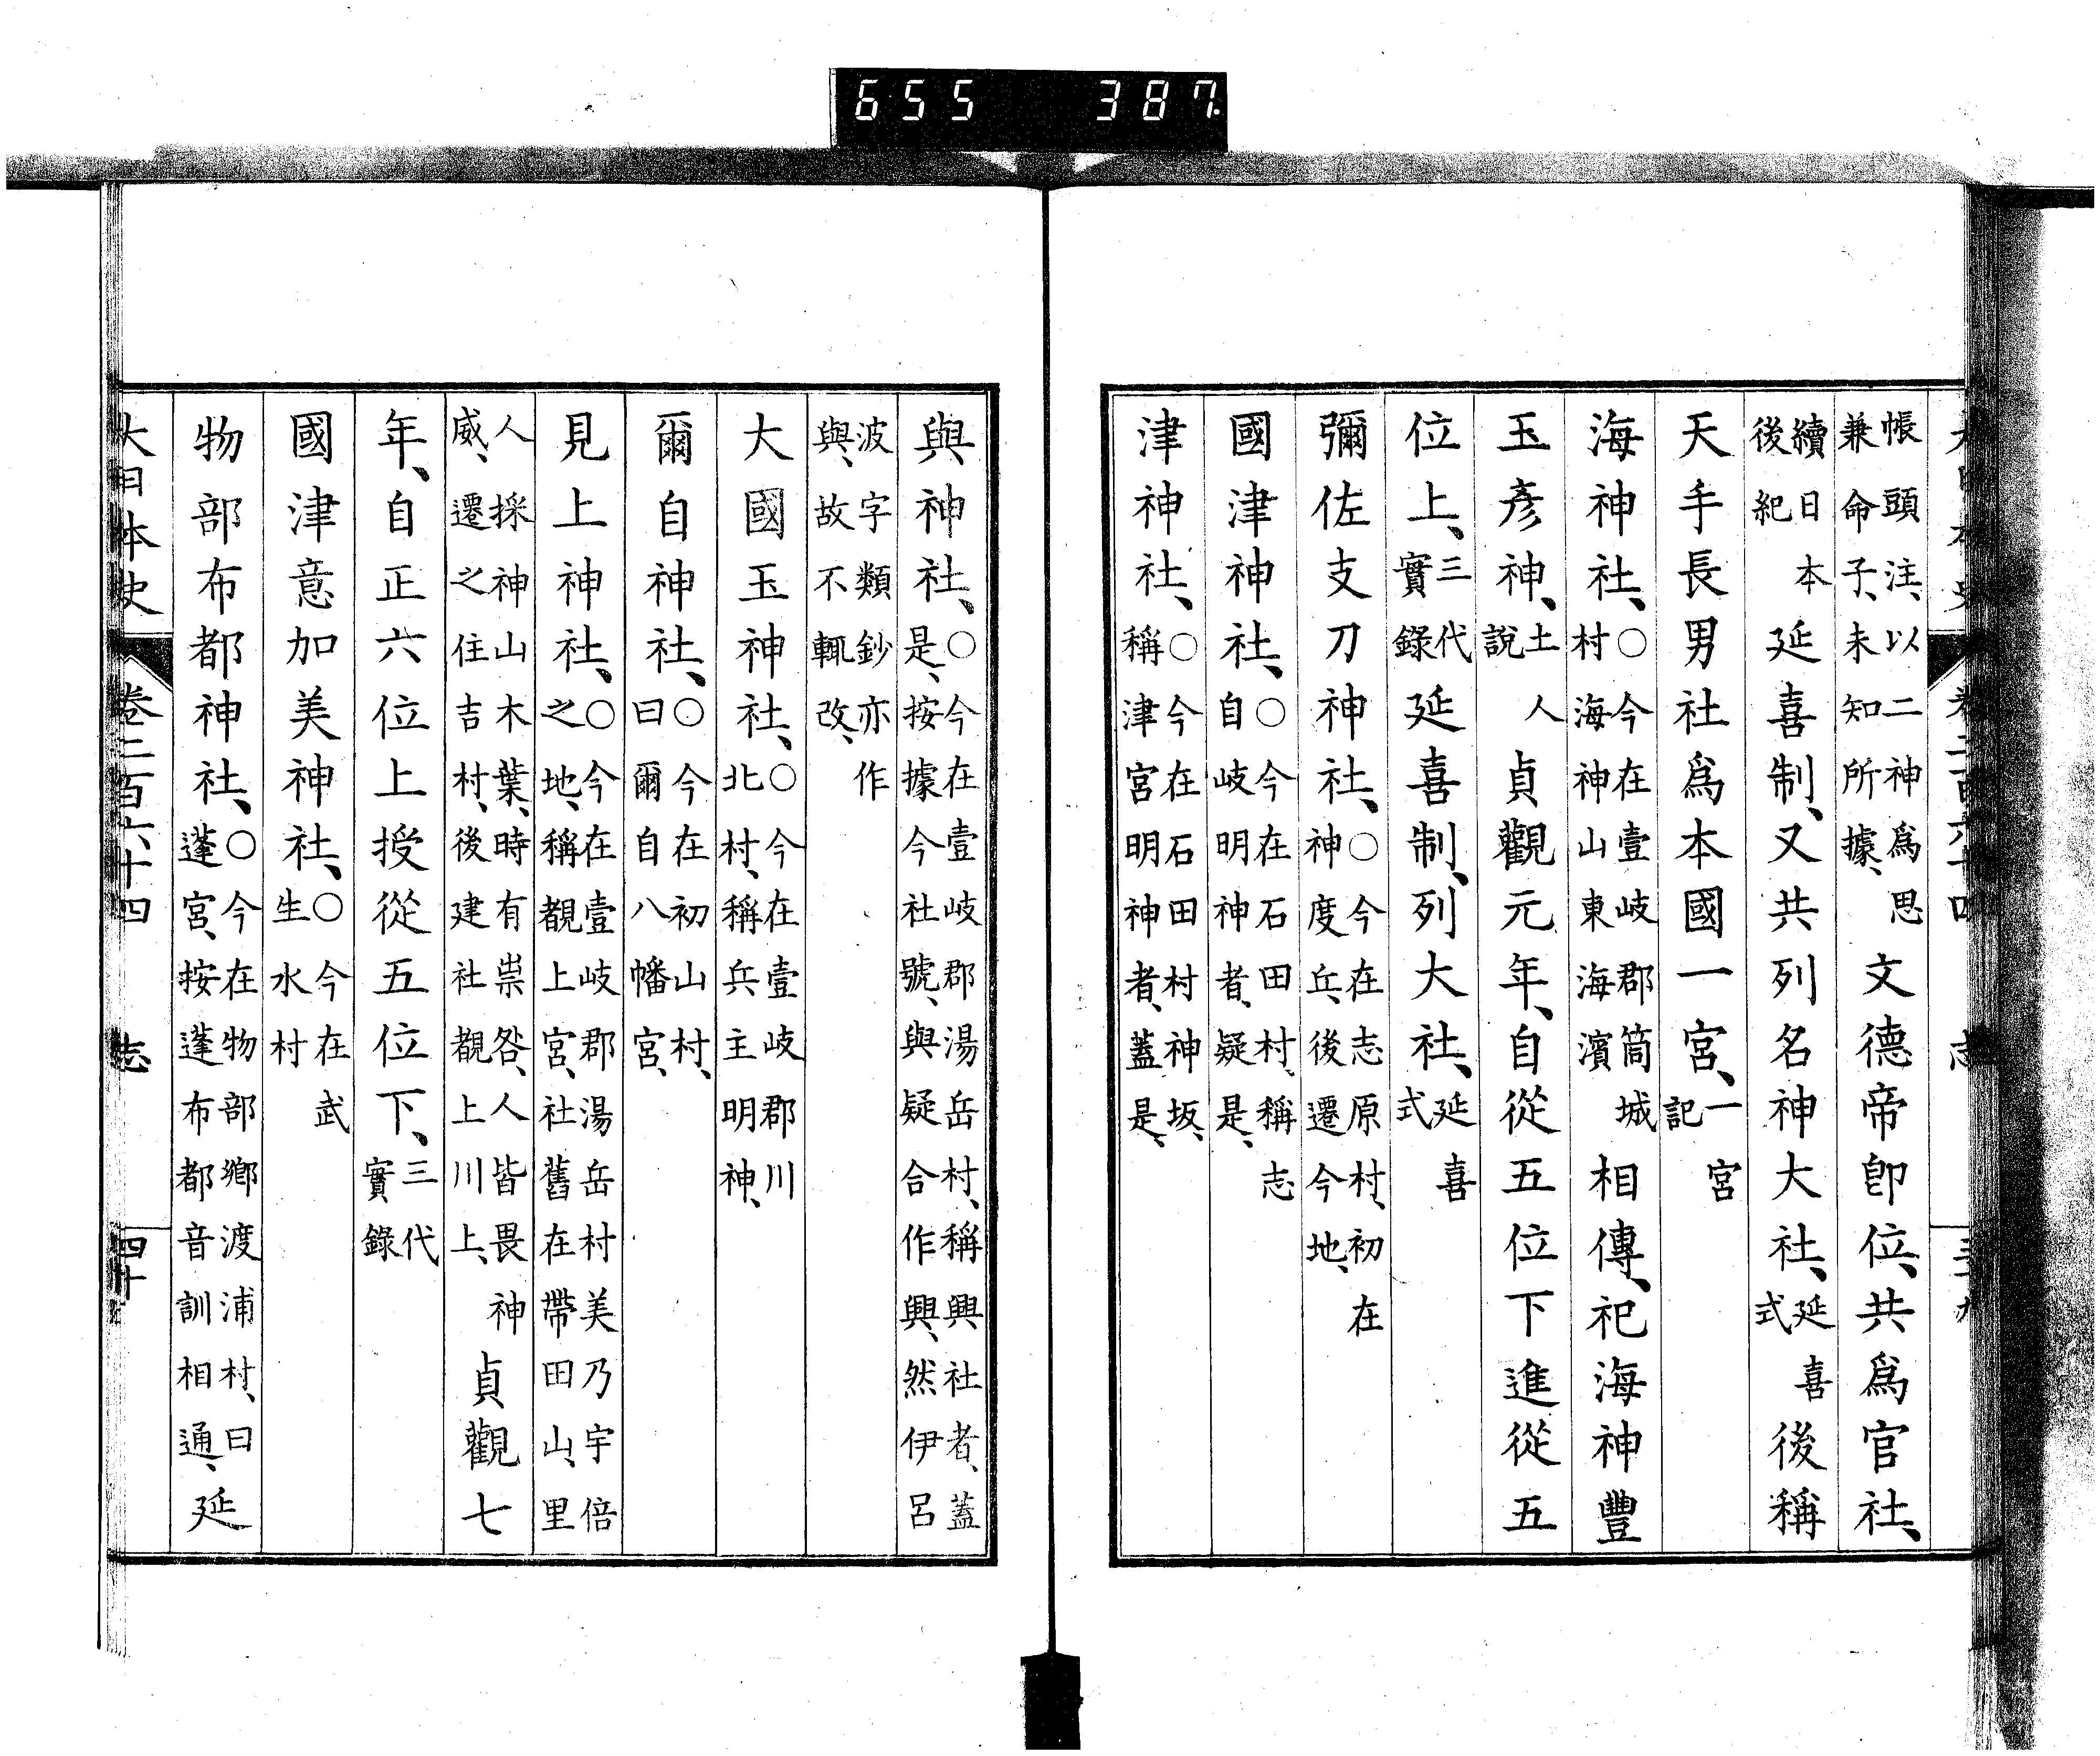 655 387
大日本史 卷二百六十四 志 三十九
帳頭注、以二神爲思兼命子、未知所據、文德帝卽位、共爲官社、
續日本後紀延喜制、又共列名神大社、延喜式後稱
天手長男社爲本國一宮、一宮記
海神社、○今在壹岐郡筒城村海神山東海濱相傳、祀海神豐
玉彥神、土人說貞觀元年、自從五位下進從五
位上、三代實錄延喜制、列大社、延喜式
彌佐支刀神社、○今在志原村、初在神度丘、後遷今地、
國津神社、○今在石田村、稱志自岐明神者、疑是、
津神社、○今在石田村神坂、稱津宮明神者、蓋是、
與神社、○今在壹岐郡湯岳村、稱興社者、蓋是、按據今社號、與疑合作興、然伊呂
波字類鈔亦作與、故不輒改、
大國玉神社、○今在壹岐郡川北村、稱兵主明神、
爾自神社、○今在初山村、曰爾自八幡宮、
見上神社、○今在壹岐郡湯岳村美乃宇倍之地、稱覩上宮、社舊在帶田山、里
人採神山木葉、時有祟咎、人皆畏神威、遷之住吉村、後建社覩上川上、貞觀七
年、自正六位上授從五位下、三代實錄
國津意加美神社、○今在武生水村
物部布都神社、○今在物部鄉渡浦村、曰蓬宮、按蓬布都音訓相通、延
大日本史 卷二百六十四 志 四十